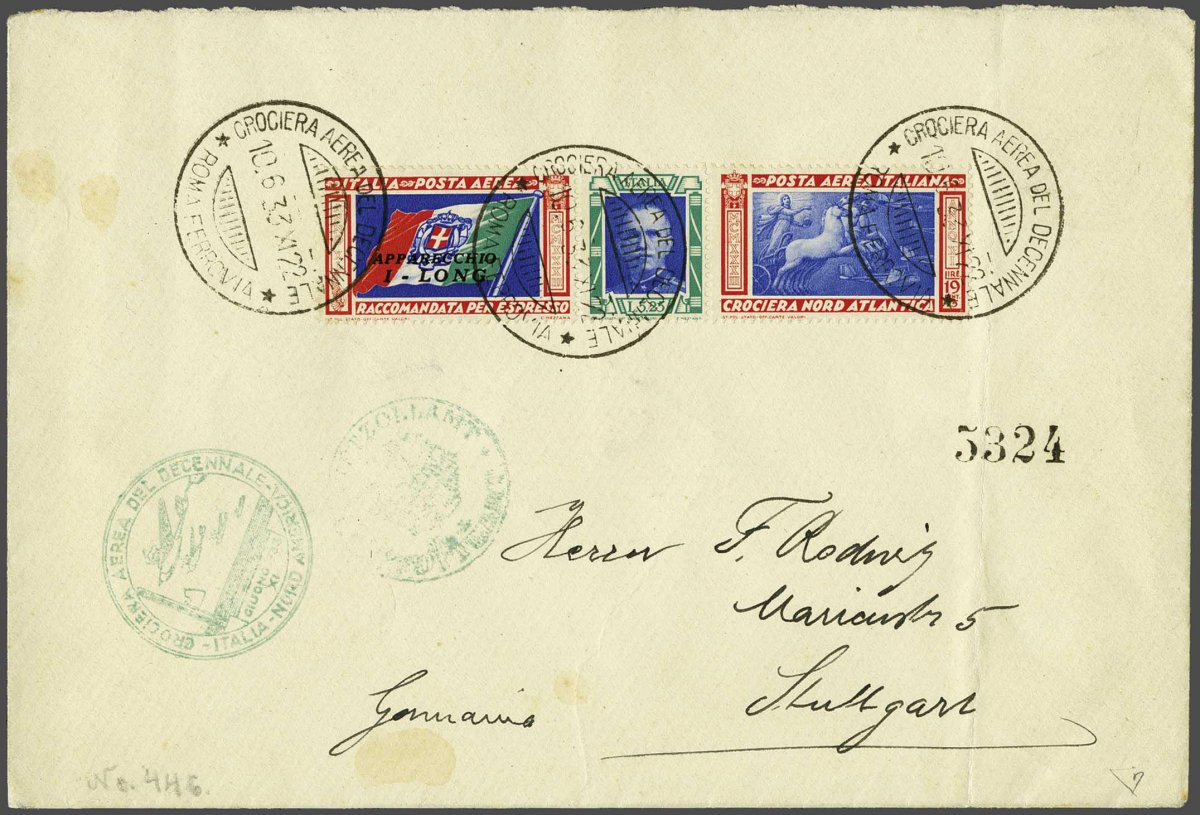 ★ CROCIERA AEREA DEL DECENNALE ★ ROMA FERROVIA
10.6.33.XI.22-
ITALIA POSTA AEREA
APPARECCHIO
I - LONG
RACCOMANDATA PER ESPRESSO
★ CROCIERA AEREA DEL DECENNALE ★ ROMA FERROVIA
L.5.25
POSTA AEREA ITALIANA
LIRE
19
CROCIERA NORD ATLANTICA
★ CROCIERA AEREA DEL DECENNALE
ROMA FERROVIA
5324
ZOLLAMT
STUTTGART
CROCIERA AEREA DEL DECENNALE-
-ITALIA-NORD AMERICA
GIUGNO
XI
Herrn F. Rodwig
Marienstr 5
Stuttgart
Germania
No. 446.